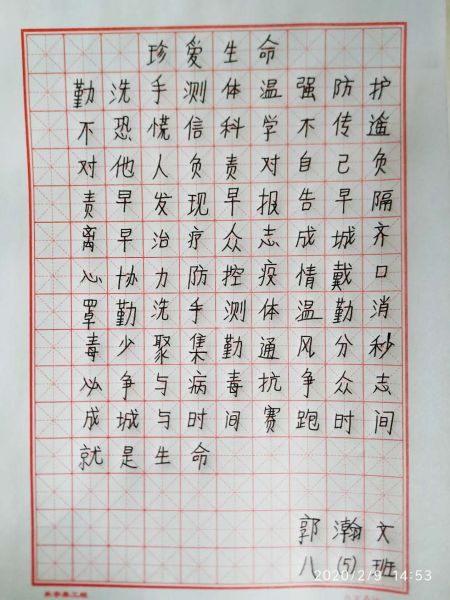 珍爱生命
勤洗手测体温强防护
不恐慌信科学不传遥
对他人负责对自己负
责早发现早报告早隔
离早治疗众志成城齐
心协力防控疫情戴口
罩勤洗手测体温勤消
毒少聚集勤通风分秒
必争与病毒抗争众志
成城与时间赛跑时间
就是生命
郭瀚文
八(5)班
2020/2/9 14:53